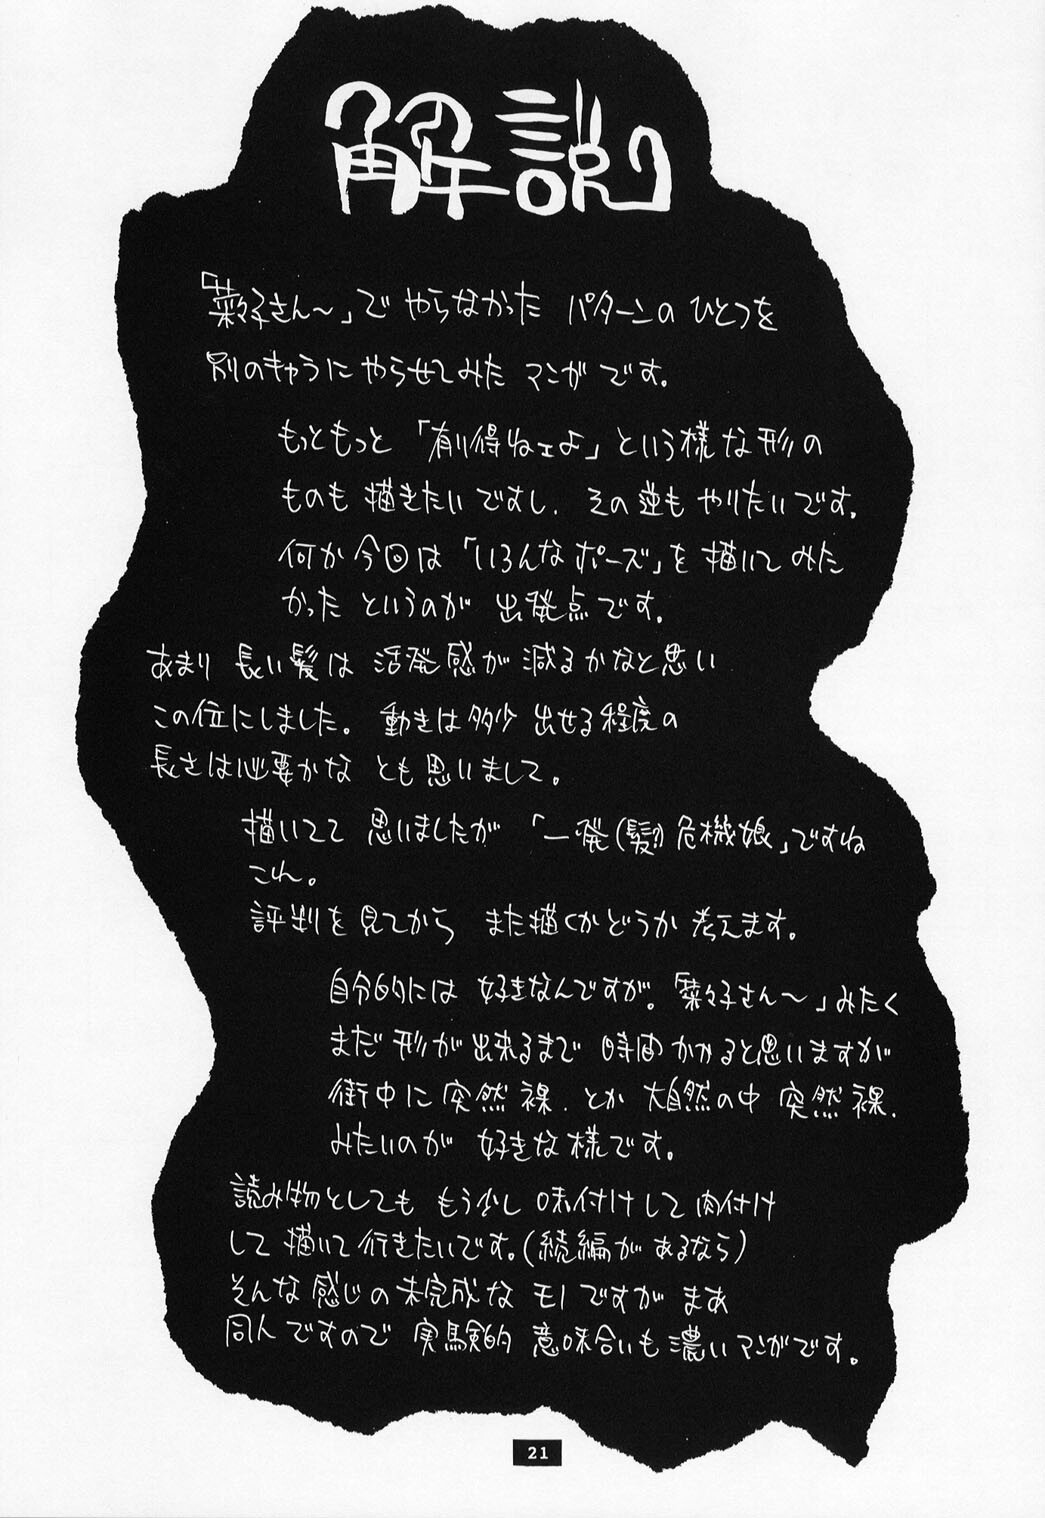 解説
「菜々子さん〜」で やらなかった パターンの ひとつを
別のキャラに やらせてみた マンガ です。
もっともっと 「有り得ねェよ」という様な形の
ものも 描きたいですし、その逆も やりたいです。
何か今回は「いろんなポーズ」を 描いて みた
かった というのが 出発点です。
あまり 長い髪は 活発感が 減るかなと思い
この位にしました。動きは多少 出せる程度の
長さは必要かな とも思いまして。
描いてて 思いましたが 「一発(髪)危機娘」ですね
これ。
評判を見てから また描くかどうか 考えます。
自分的には 好きなんですが。「菜々子さん〜」みたく
まだ 形が出来るまで 時間かかると思いますが
街中に 突然 裸、とか 大自然の中 突然 裸、
みたいのが 好きな様です。
読み物としても もう少し 味付けして 肉付け
して 描いて 行きたいです。(続編が あるなら)
そんな感じの未完成な モノですが まあ
同人ですので 実験的 意味合いも濃いマンガです。
21